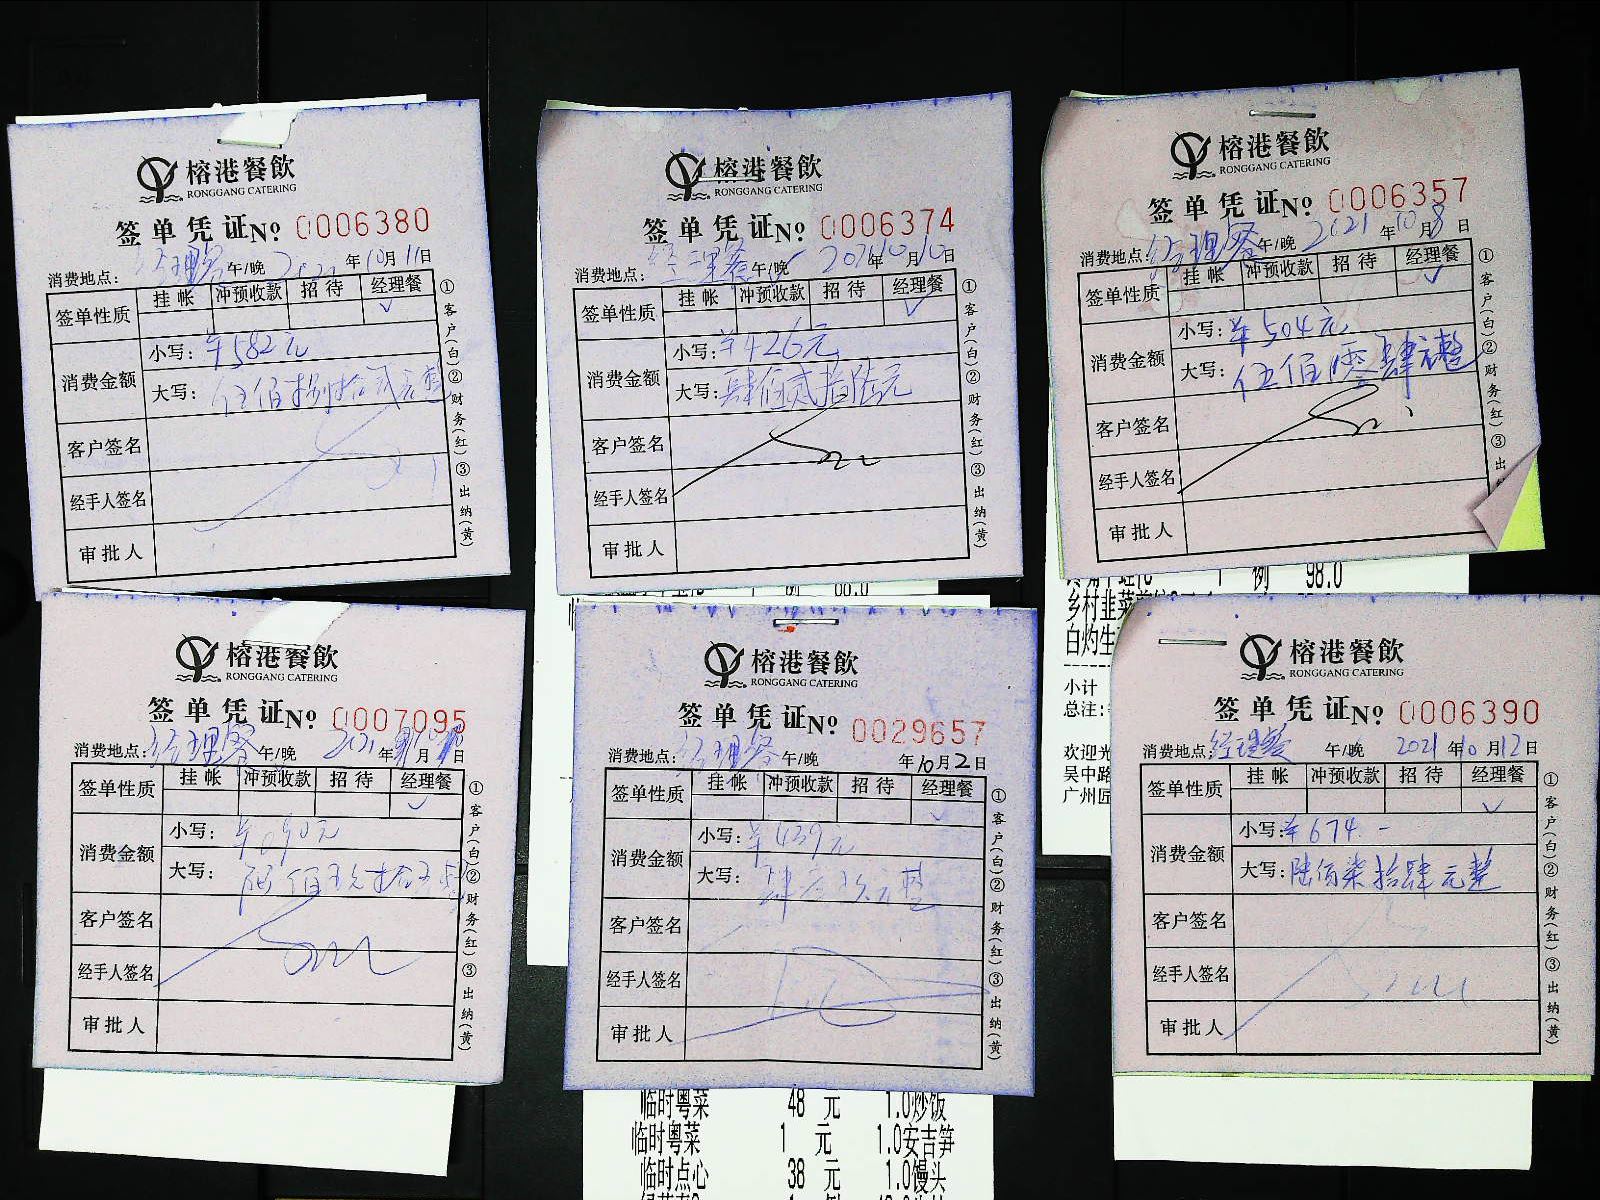 榕港餐飲
RONGGANG CATERING
签单凭证No 0006380
消费地点：经理餐 午/晚 2021年10月11日
签单性质 挂帐 冲预收款 招待 经理餐
✓
消费金额 小写：￥582元
大写：伍佰捌拾贰元整
客户签名
经手人签名
审批人
①客户(白)②财务(红)③出纳(黄)
榕港餐飲
RONGGANG CATERING
签单凭证No 0006374
消费地点：经理餐 午/晚 2021年10月10日
签单性质 挂帐 冲预收款 招待 经理餐
✓
消费金额 小写：￥426元
大写：肆佰贰拾陆元
客户签名
经手人签名
审批人
①客户(白)②财务(红)③出纳(黄)
榕港餐飲
RONGGANG CATERING
签单凭证No 0006357
消费地点：经理餐 午/晚 2021年10月8日
签单性质 挂帐 冲预收款 招待 经理餐
✓
消费金额 小写：￥504元
大写：伍佰零肆元整
客户签名
经手人签名
审批人
①客户(白)②财务(红)③出纳(黄)
1 例 98.0
乡村韭菜
白灼生
小计
总注:
欢迎光
吴中路
广州匠
榕港餐飲
RONGGANG CATERING
签单凭证No 0007095
消费地点：经理餐 午/晚 2021年 月 日
签单性质 挂帐 冲预收款 招待 经理餐
✓
消费金额 小写：
大写：
客户签名
经手人签名
审批人
①客户(白)②财务(红)③出纳(黄)
榕港餐飲
RONGGANG CATERING
签单凭证No 0029657
消费地点：经理餐 午/晚 年10月2日
签单性质 挂帐 冲预收款 招待 经理餐
✓
消费金额 小写：￥439元
大写：
客户签名
经手人签名
审批人
①客户(白)②财务(红)③出纳(黄)
临时粤菜 48 元 1.0炒饭
临时粤菜 1 元 1.0安吉笋
临时点心 38 元 1.0馒头
榕港餐飲
RONGGANG CATERING
签单凭证No 0006390
消费地点：经理餐 午/晚 2021年10月12日
签单性质 挂帐 冲预收款 招待 经理餐
✓
消费金额 小写：￥674.-
大写：陆佰柒拾肆元整
客户签名
经手人签名
审批人
①客户(白)②财务(红)③出纳(黄)